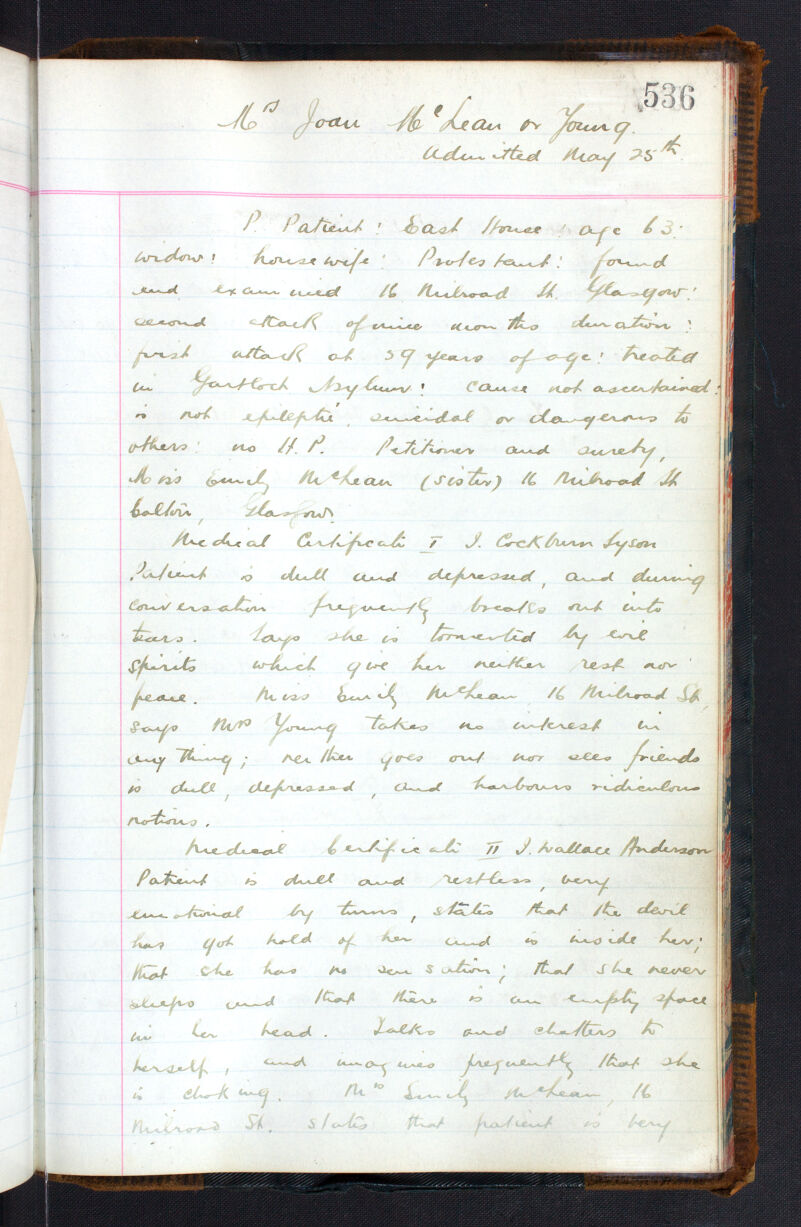 536
Mrs Joan McLean or Young.
Admitted May 25th
P. Patient: East House: age 63:
widow: housewife: Protestant: found
and examined 16 Milroad St. Glasgow:
second attack of nine months duration:
first attack at 59 years of age: treated
in Gartloch Asylum: cause not ascertained:
is not epileptic, suicidal or dangerous to
others: no H.P. Petitioner and surety,
Miss Emily McLean (sister) 16 Milroad St
Calton, Glasgow.
Medical Certificate I J. Cockburn Syson
Patient is dull and depressed, and during
conversation frequently breaks out into
tears. Says she is tormented by evil
spirits which give her neither rest nor
peace. Miss Emily McLean 16 Milroad St,
says Mrs Young takes no interest in
any thing; neither goes out nor sees friends
is dull, depressed, and harbours ridiculous
notions.
Medical Certificate II J. Wallace Anderson
Patient is dull and restless, very
emotional by turns, states that the devil
has got hold of her and is inside her;
that she has no sensation; that she never
sleeps and that there is an empty space
in her head. Talks and chatters to
herself, and imagines frequently that she
is choking. Ms Emily McLean, 16
Milroad St. states that patient is very